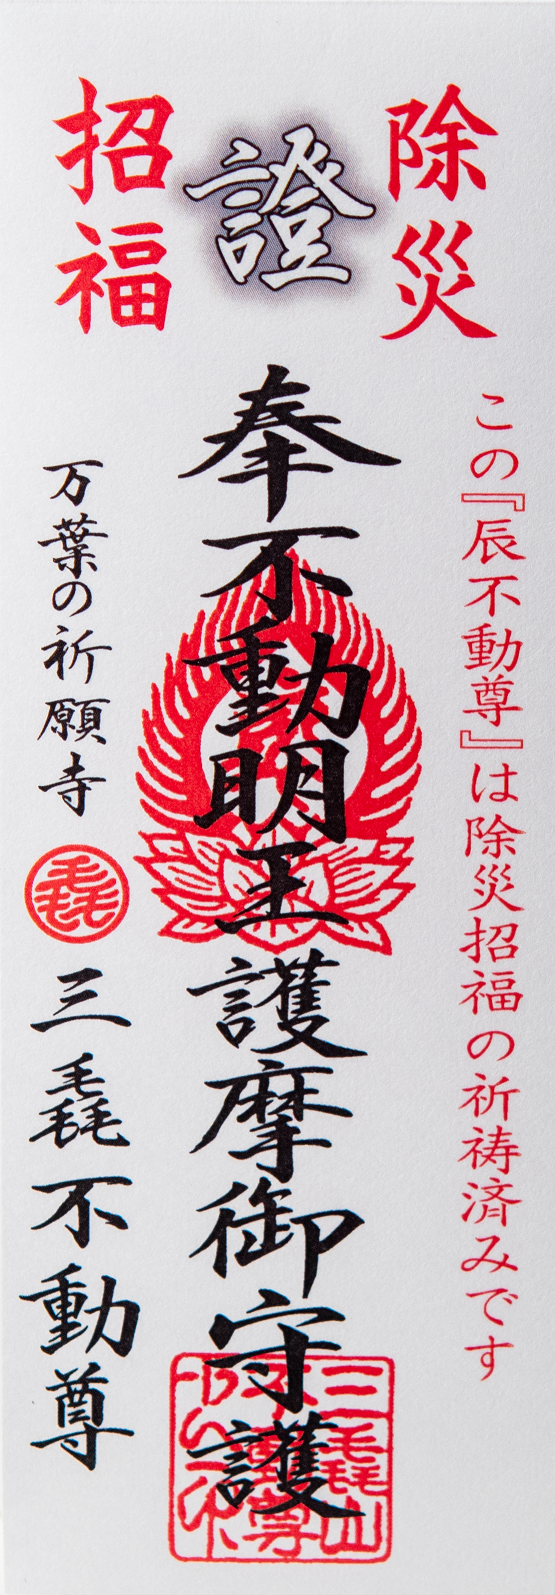 除災
證
招福
この『辰不動尊』は除災招福の祈祷済みです
奉不動明王護摩御守護
万葉の祈願寺
毳
三毳不動尊